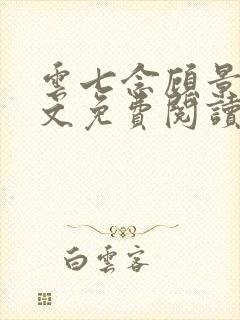 雲七念顧景
文免費閱讀
白雲客